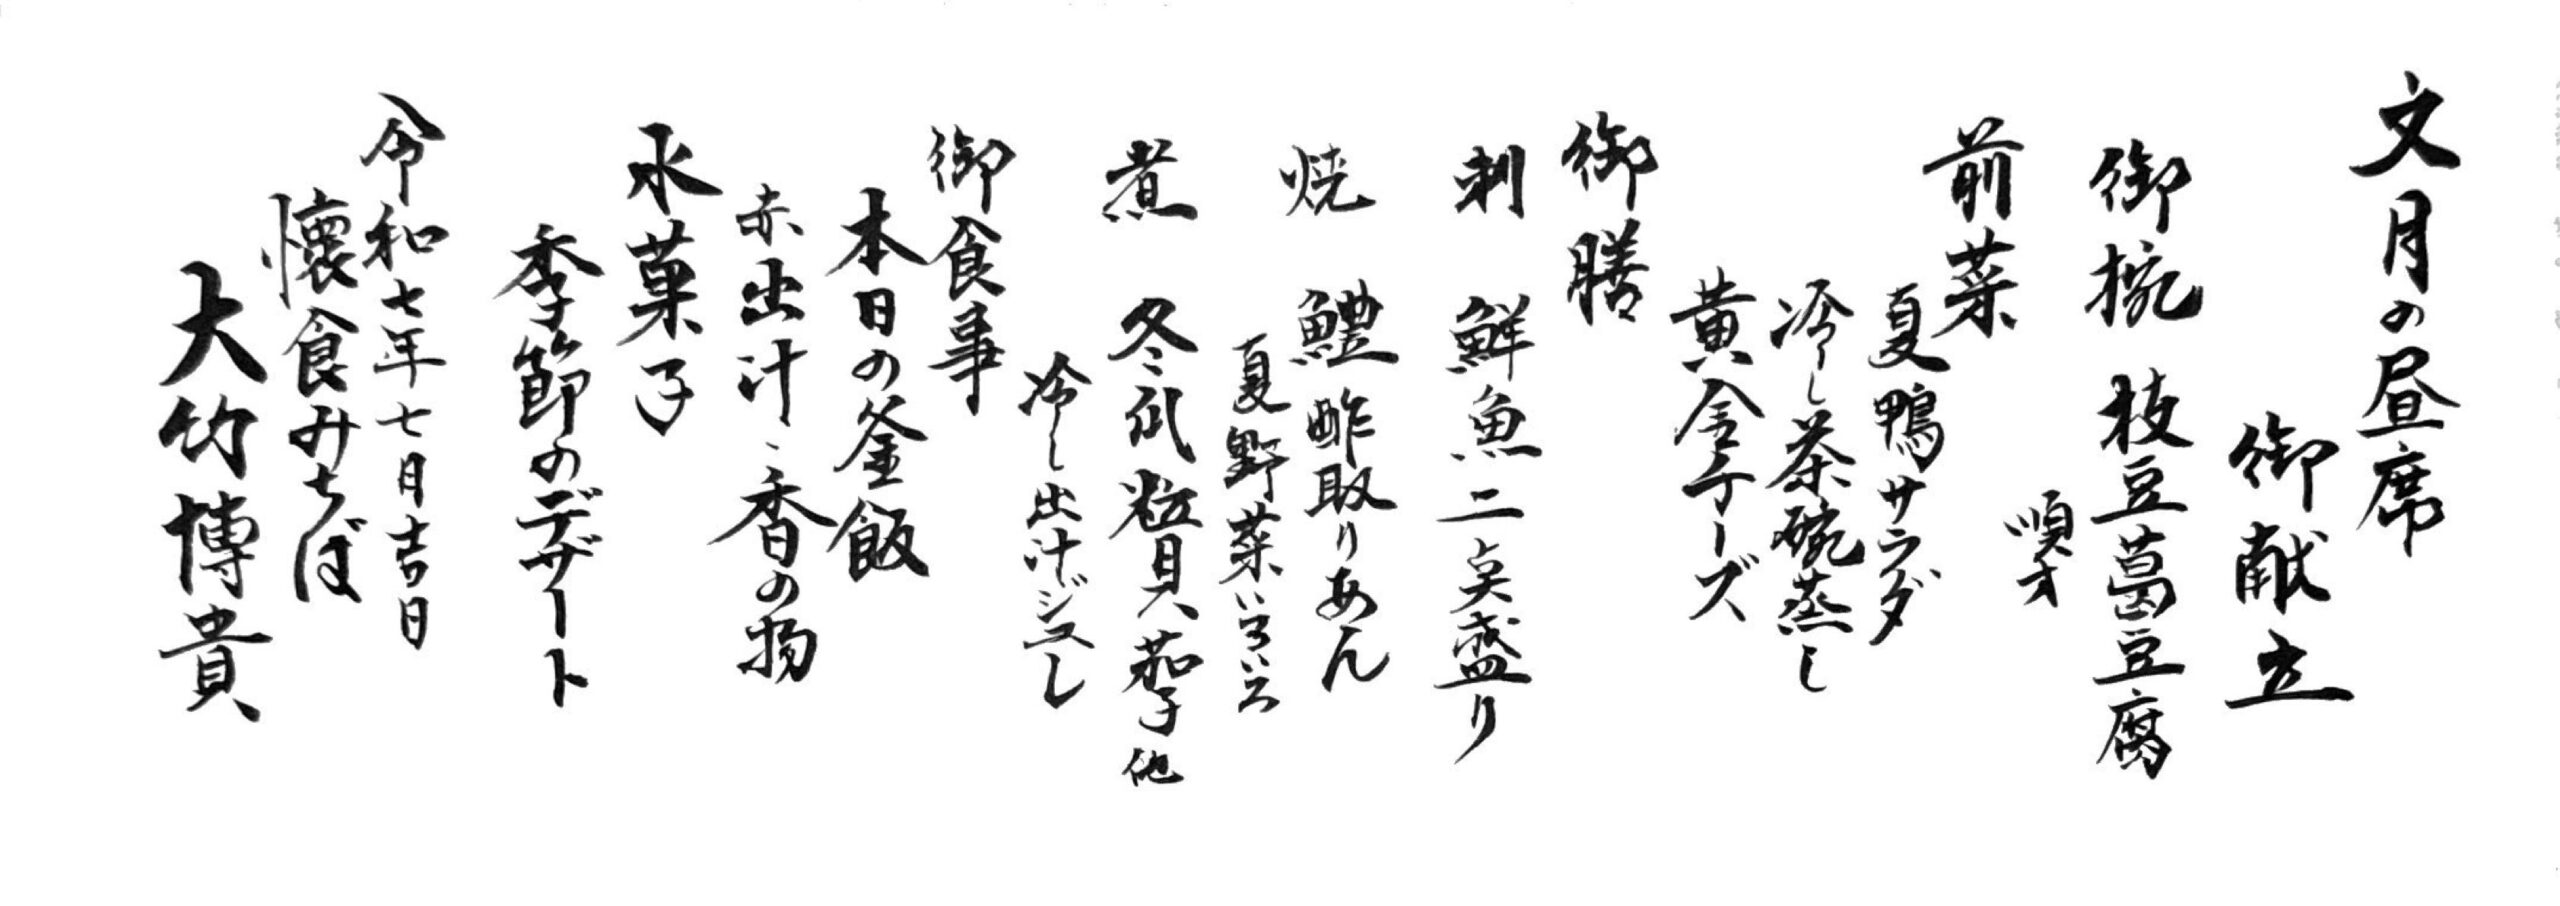 文月の昼席
御献立
御椀 枝豆葛豆腐
順才
前菜
夏鴨サラダ
冷し茶碗蒸し
黄金チーズ
御膳
刺 鮮魚二点盛り
焼 鱧 酢取りあん
夏野菜いろいろ
煮 冬瓜 粒貝 茄子 他
冷し出汁ジュレ
御食事
本日の釜飯
赤出汁、香の物
水菓子
季節のデザート
令和七年七月吉日
懐食みちば
大竹博貴